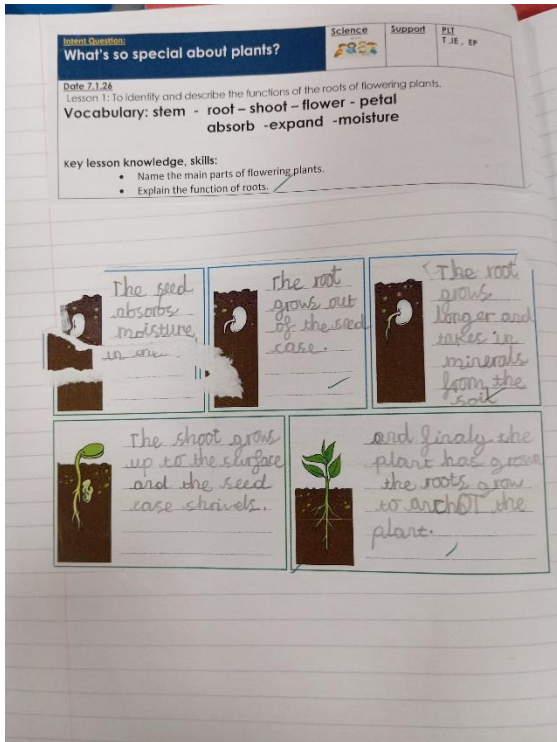 Intent Question:
What's so special about plants?
Science
Support
PLT
T ,IE , EP
Date 7.1.26
Lesson 1: To identify and describe the functions of the roots of flowering plants.
Vocabulary: stem - root – shoot – flower - petal
absorb -expand -moisture
Key lesson knowledge, skills:
• Name the main parts of flowering plants.
• Explain the function of roots.
The seed
absorbs
moisture
in
The root
grows out
of the seed
case.
The root
grows
longer and
takes in
minerals
from the
soil
The shoot grows
up to the surface
and the seed
case shrivels.
and finaly the
plant has grown
the roots grow
to the
plant.